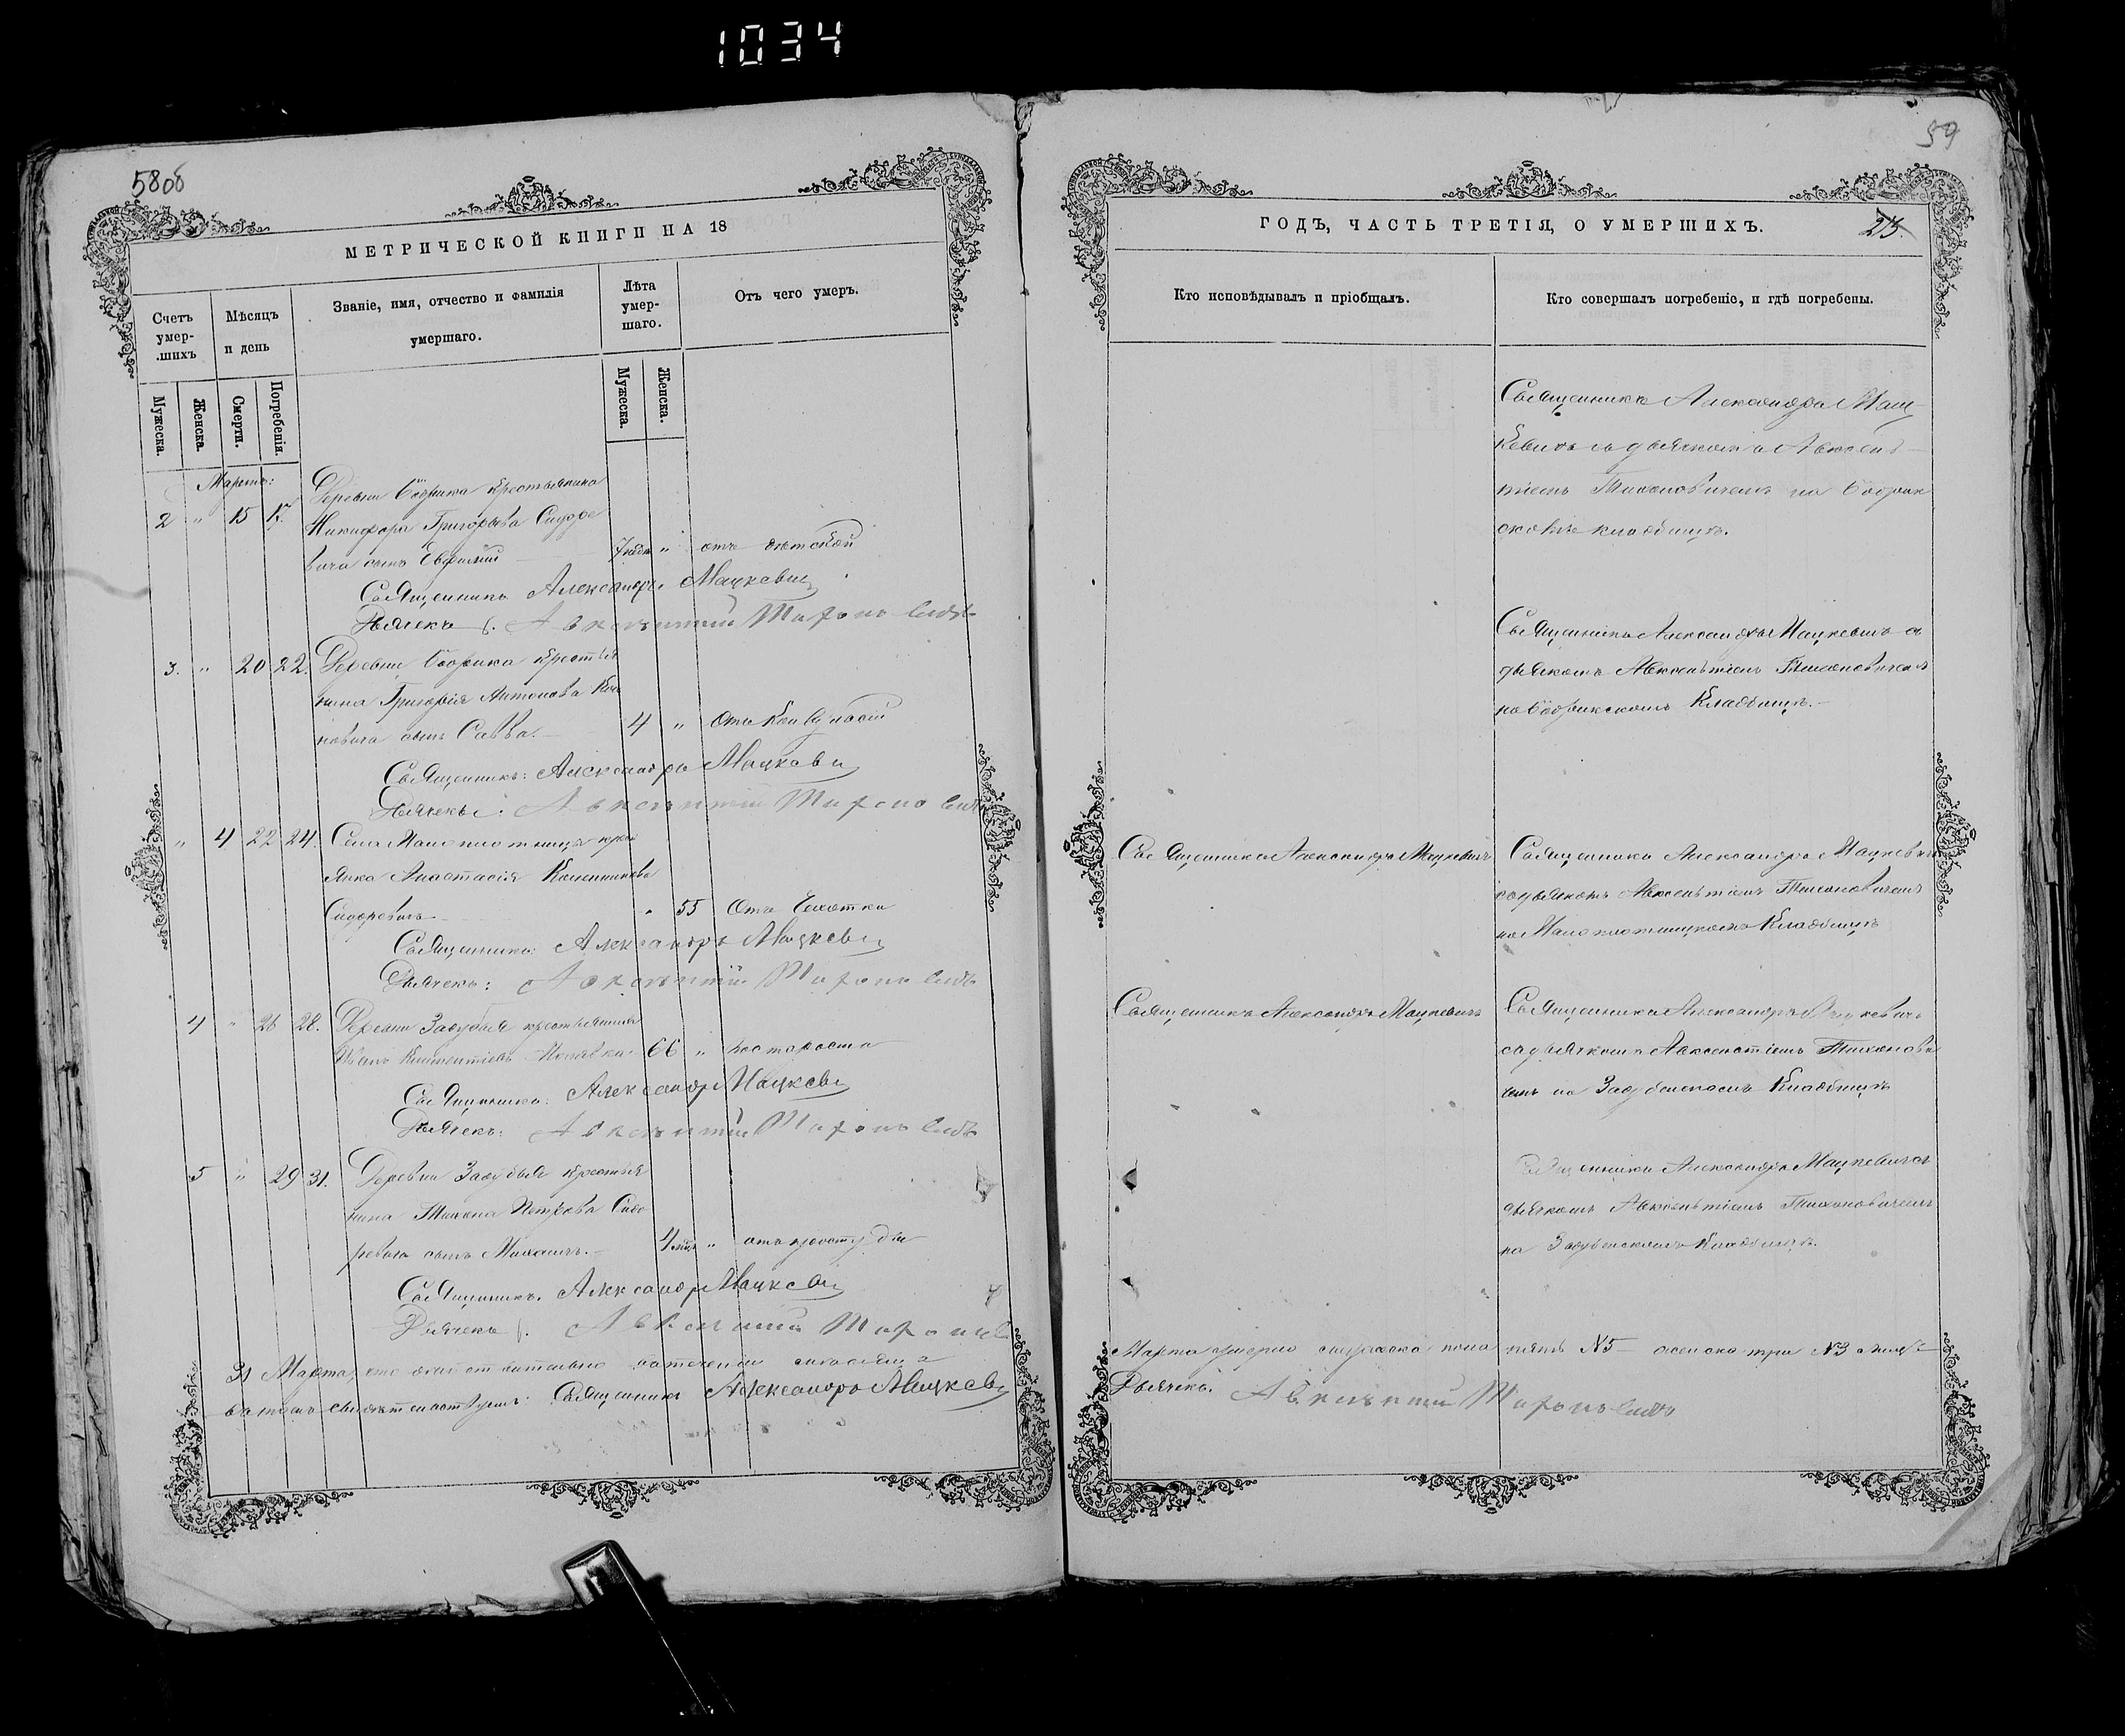 1034
58об
МЕТРИЧЕСКОЙ КНИГИ НА 18
Счетъ умер-шихъ
Мѣсяцъ и день
Званіе, имя, отчество и фамилія умершаго.
Лѣта умер-шаго.
Отъ чего умеръ.
Мужеска.
Женска.
Смерти.
Погребенія.
Мужеска.
Женска.
Мартъ:
Деревни Бобрика крестьянина
2 " 15 17. Никифора Григорьева Сидоре
вича сынъ Евфимій 7 нед. " отъ дѣтской
Священникъ Александръ Мацкевич
Дьячекъ Авксентій Тихоновичъ
3. " 20 22. Деревни Бобрика крестья
нина Григорія Антонова
новича сынъ Савва. 4 "
Священникъ: Александръ Мацкевич
Дьячекъ: Авксентій Тихоновичъ
" 4 22 24. Села Малоплотницы крес
янка Анастасія
Сидоревичъ " 55 Отъ Чахотки
Священникъ: Александръ Мацкевич
Дьячекъ: Авксентій Тихоновичъ
4 " 26 28. Деревни Задубья крестьянинъ
Иванъ 66 " Отъ старости
Священникъ: Александръ Мацкевич
Дьячекъ: Авксентій Тихоновичъ
5 " 29 31. Деревни Задубья крестья
нина Тихона Петрова Сидо
ревича сынъ Михаилъ. 4 мѣс. " отъ простуды
Священникъ. Александръ Мацкевич
Дьячекъ Авксентій Тихоновичъ
31 Марта, что дѣйствительно въ теченіи сего мѣсяца
въ томъ свидѣтельствуемъ: Священникъ Александръ Мацкевич
59
ГОДЪ, ЧАСТЬ ТРЕТІЯ, О УМЕРШИХЪ.
Кто исповѣдывалъ и пріобщалъ.
Кто совершалъ погребеніе, и гдѣ погребены.
Священникъ Александръ Мац
кевичъ съ дьячкомъ Авксен
тіемъ Тихоновичемъ на Бобрик
скомъ кладбищѣ.
Священникъ Александръ Мацкевичъ съ
дьячкомъ Авксентіемъ Тихоновичемъ
на Бобрикскомъ Кладбищѣ.
Священникъ Александръ Мацкевичъ
Священникъ Александръ Мацкевичъ
съ дьячкомъ Авксентіемъ Тихоновичемъ
на Малоплотницкомъ Кладбищѣ
Священникъ Александръ Мацкевичъ
Священникъ Александръ Мацкевичъ
съ дьячкомъ Авксентіемъ Тихонови
чемъ на Задубенскомъ Кладбищѣ
Священникъ Александръ Мацкевичъ съ
дьячкомъ Авксентіемъ Тихоновичемъ
на Задубенскомъ Кладбищѣ.
Марта умерло мужеска пола пять №5 женска три №3
Дьячекъ. Авксентій Тихоновичъ